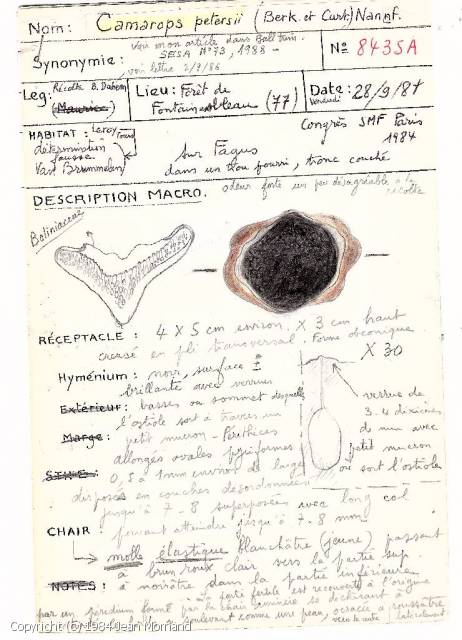 Nom: Camarops petersii (Berk. et Curt.) Nannf.
Voir mon article dans Bull. Fém.
SESA N°73, 1988 -
Synonymie:
voir lettre 2/9/86
N° 8435A
Leg: Récolte B. Dabem
(Maurice)
Lieu: Forêt de
Fontainebleau (77)
Date: 28/9/84
Vendredi
Congrès SMF Paris
1984
HABITAT: Leroy
détermination
fausse.
Van Brummelen
sur Fagus
dans un trou pourri, tronc couché
odeur forte un peu désagréable à la
récolte
DESCRIPTION MACRO.
Boliniaceae
RÉCEPTACLE : 4 X 5 cm environ. X 3 cm haut
creusé en pli transversal. Forme obconique
X 30
Hyménium : noir, surface ±
brillante avec verrues
Extérieur : basses au sommet desquelles
l'ostiole sort à travers un
Marge : petit mucron - Périthèces
allongés ovales pyriformes
STIPE : 0,5 à 1 mm environ de large
disposés en couches désordonnées
jusqu'à 7-8 superposés avec long col
pouvant atteindre jusqu'à 7-8 mm
verrues de
3.4 dixièmes
de mm avec
petit mucron
où sont l'ostiole
CHAIR : molle élastique blanchâtre (jeune) passant
à brun/roux clair vers la partie sup.
NOTES : à noirâtre dans la partie inférieure
- La partie fertile est recouverte à l'origine
par un peridium formé par la chair laminée se déchirant à
soulevant comme une peau, ocracée à roussâtre
vers le haut latéralement
Copyright (c) 1984 Jean Mornand